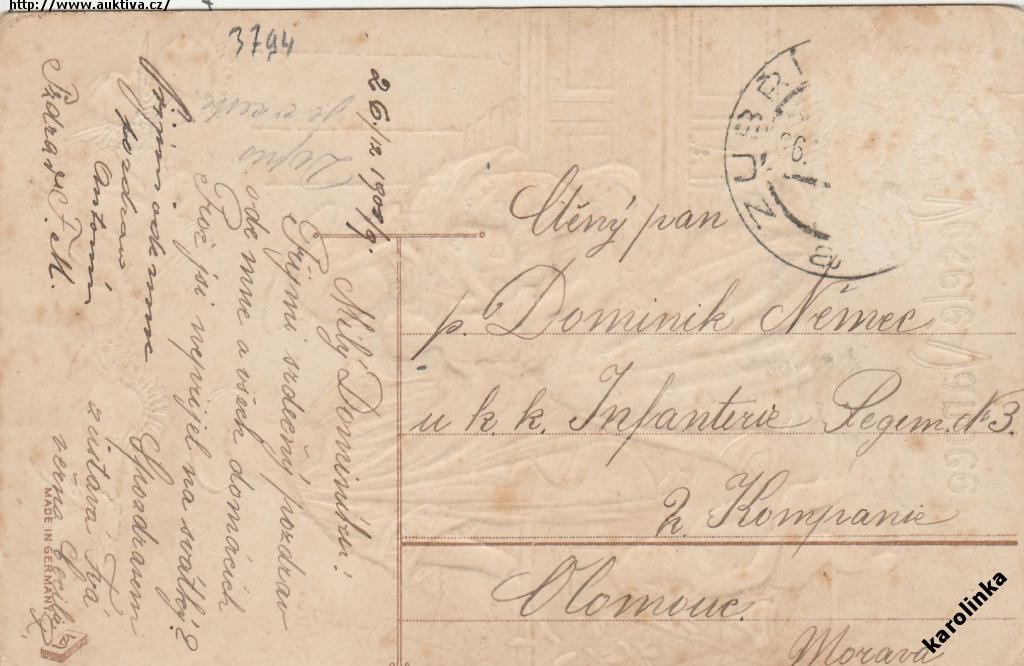 http://www.auktiva.cz/
3794
26/12 1909
Milý Dominiku!
Přijmi srdečný pozdrav
ode mne a všech domácích
Proč jsi nepřijel na svátky?
S pozdravem
zůstává Tvá
věrna
Přijmi ode mne
pozdrav
Antonín
Pozdrav F. M.
Piš
MADE IN GERMANY
ZUBŘÍ
a
Ctěný pan
p. Dominik Němec
u k. k. Infanterie Regem. № 3.
2. Kompanie
Olomouc.
Morava
Veselé Vánoce
karolinka